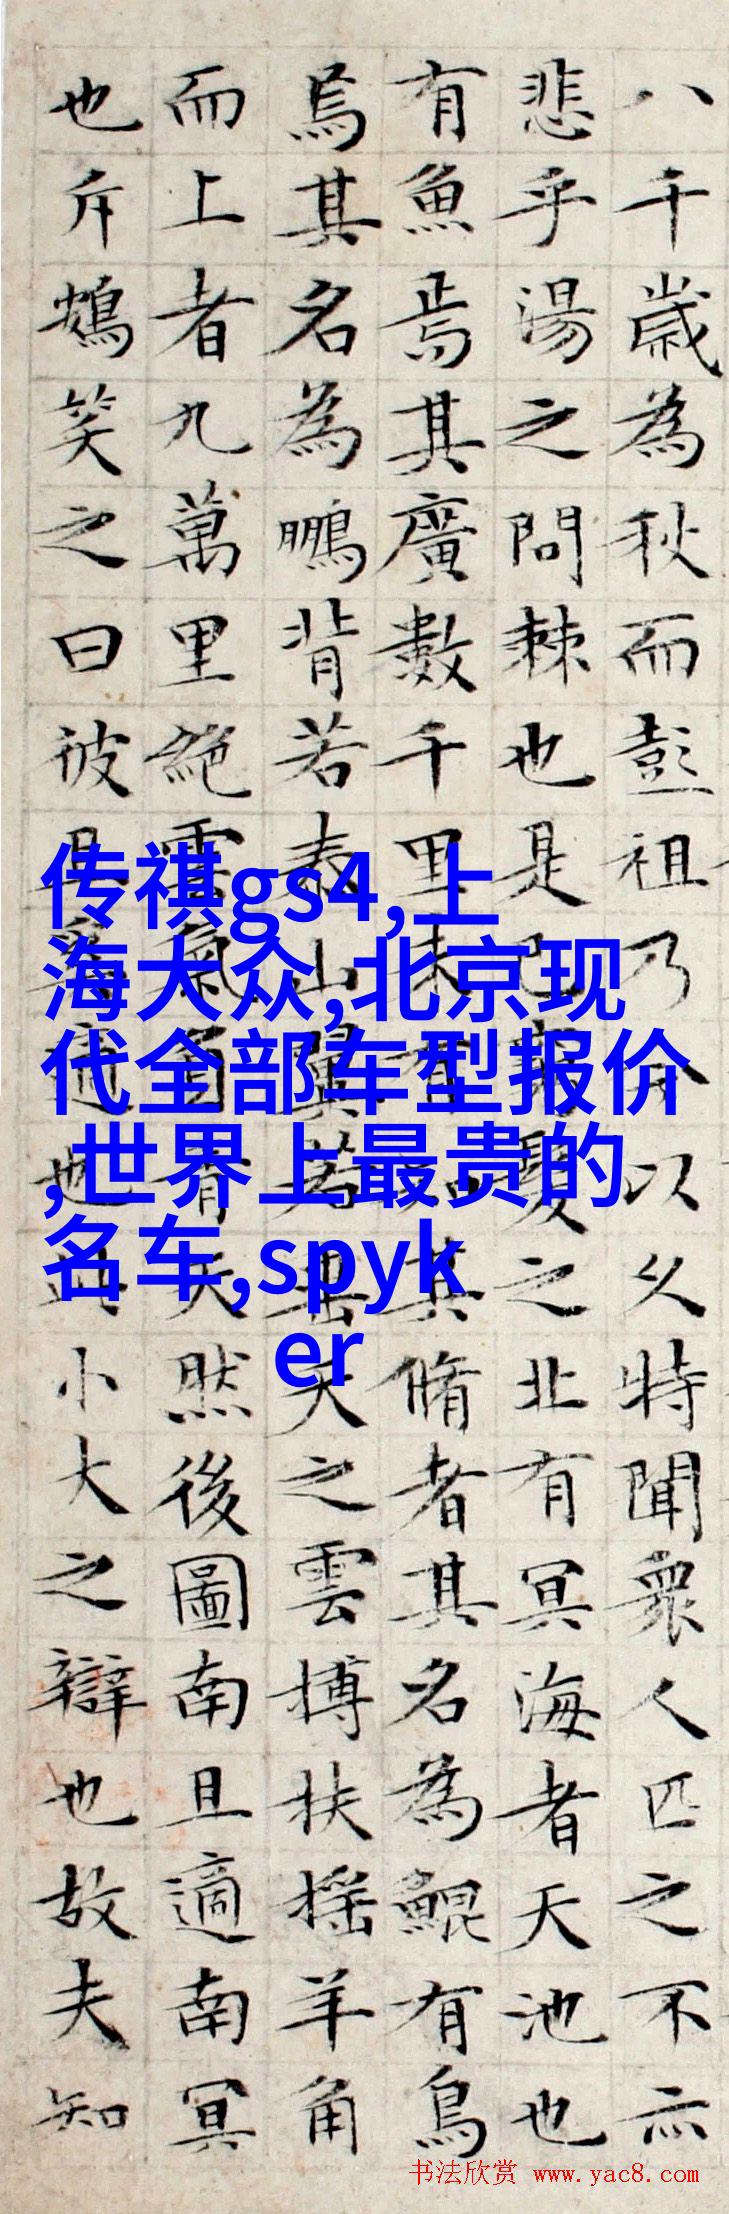 八千歲為秋而彭祖乃今以久特聞衆人匹之不亦
悲乎湯之問棘也是已窮髮之北有冥海者天池也
有魚焉其廣數千里未有知其脩者其名為鯤有鳥
焉其名為鵬背若泰山翼若垂天之雲搏扶搖羊角
而上者九萬里絕雲氣負青天然後圖南且適南冥
也斥鴳笑之曰彼且奚適也此小大之辯也故夫知
传祺gs4,上
海大众,北京现
代全部车型报价
,世界上最贵的
名车,spyk
er
书法欣赏 www.yac8.com